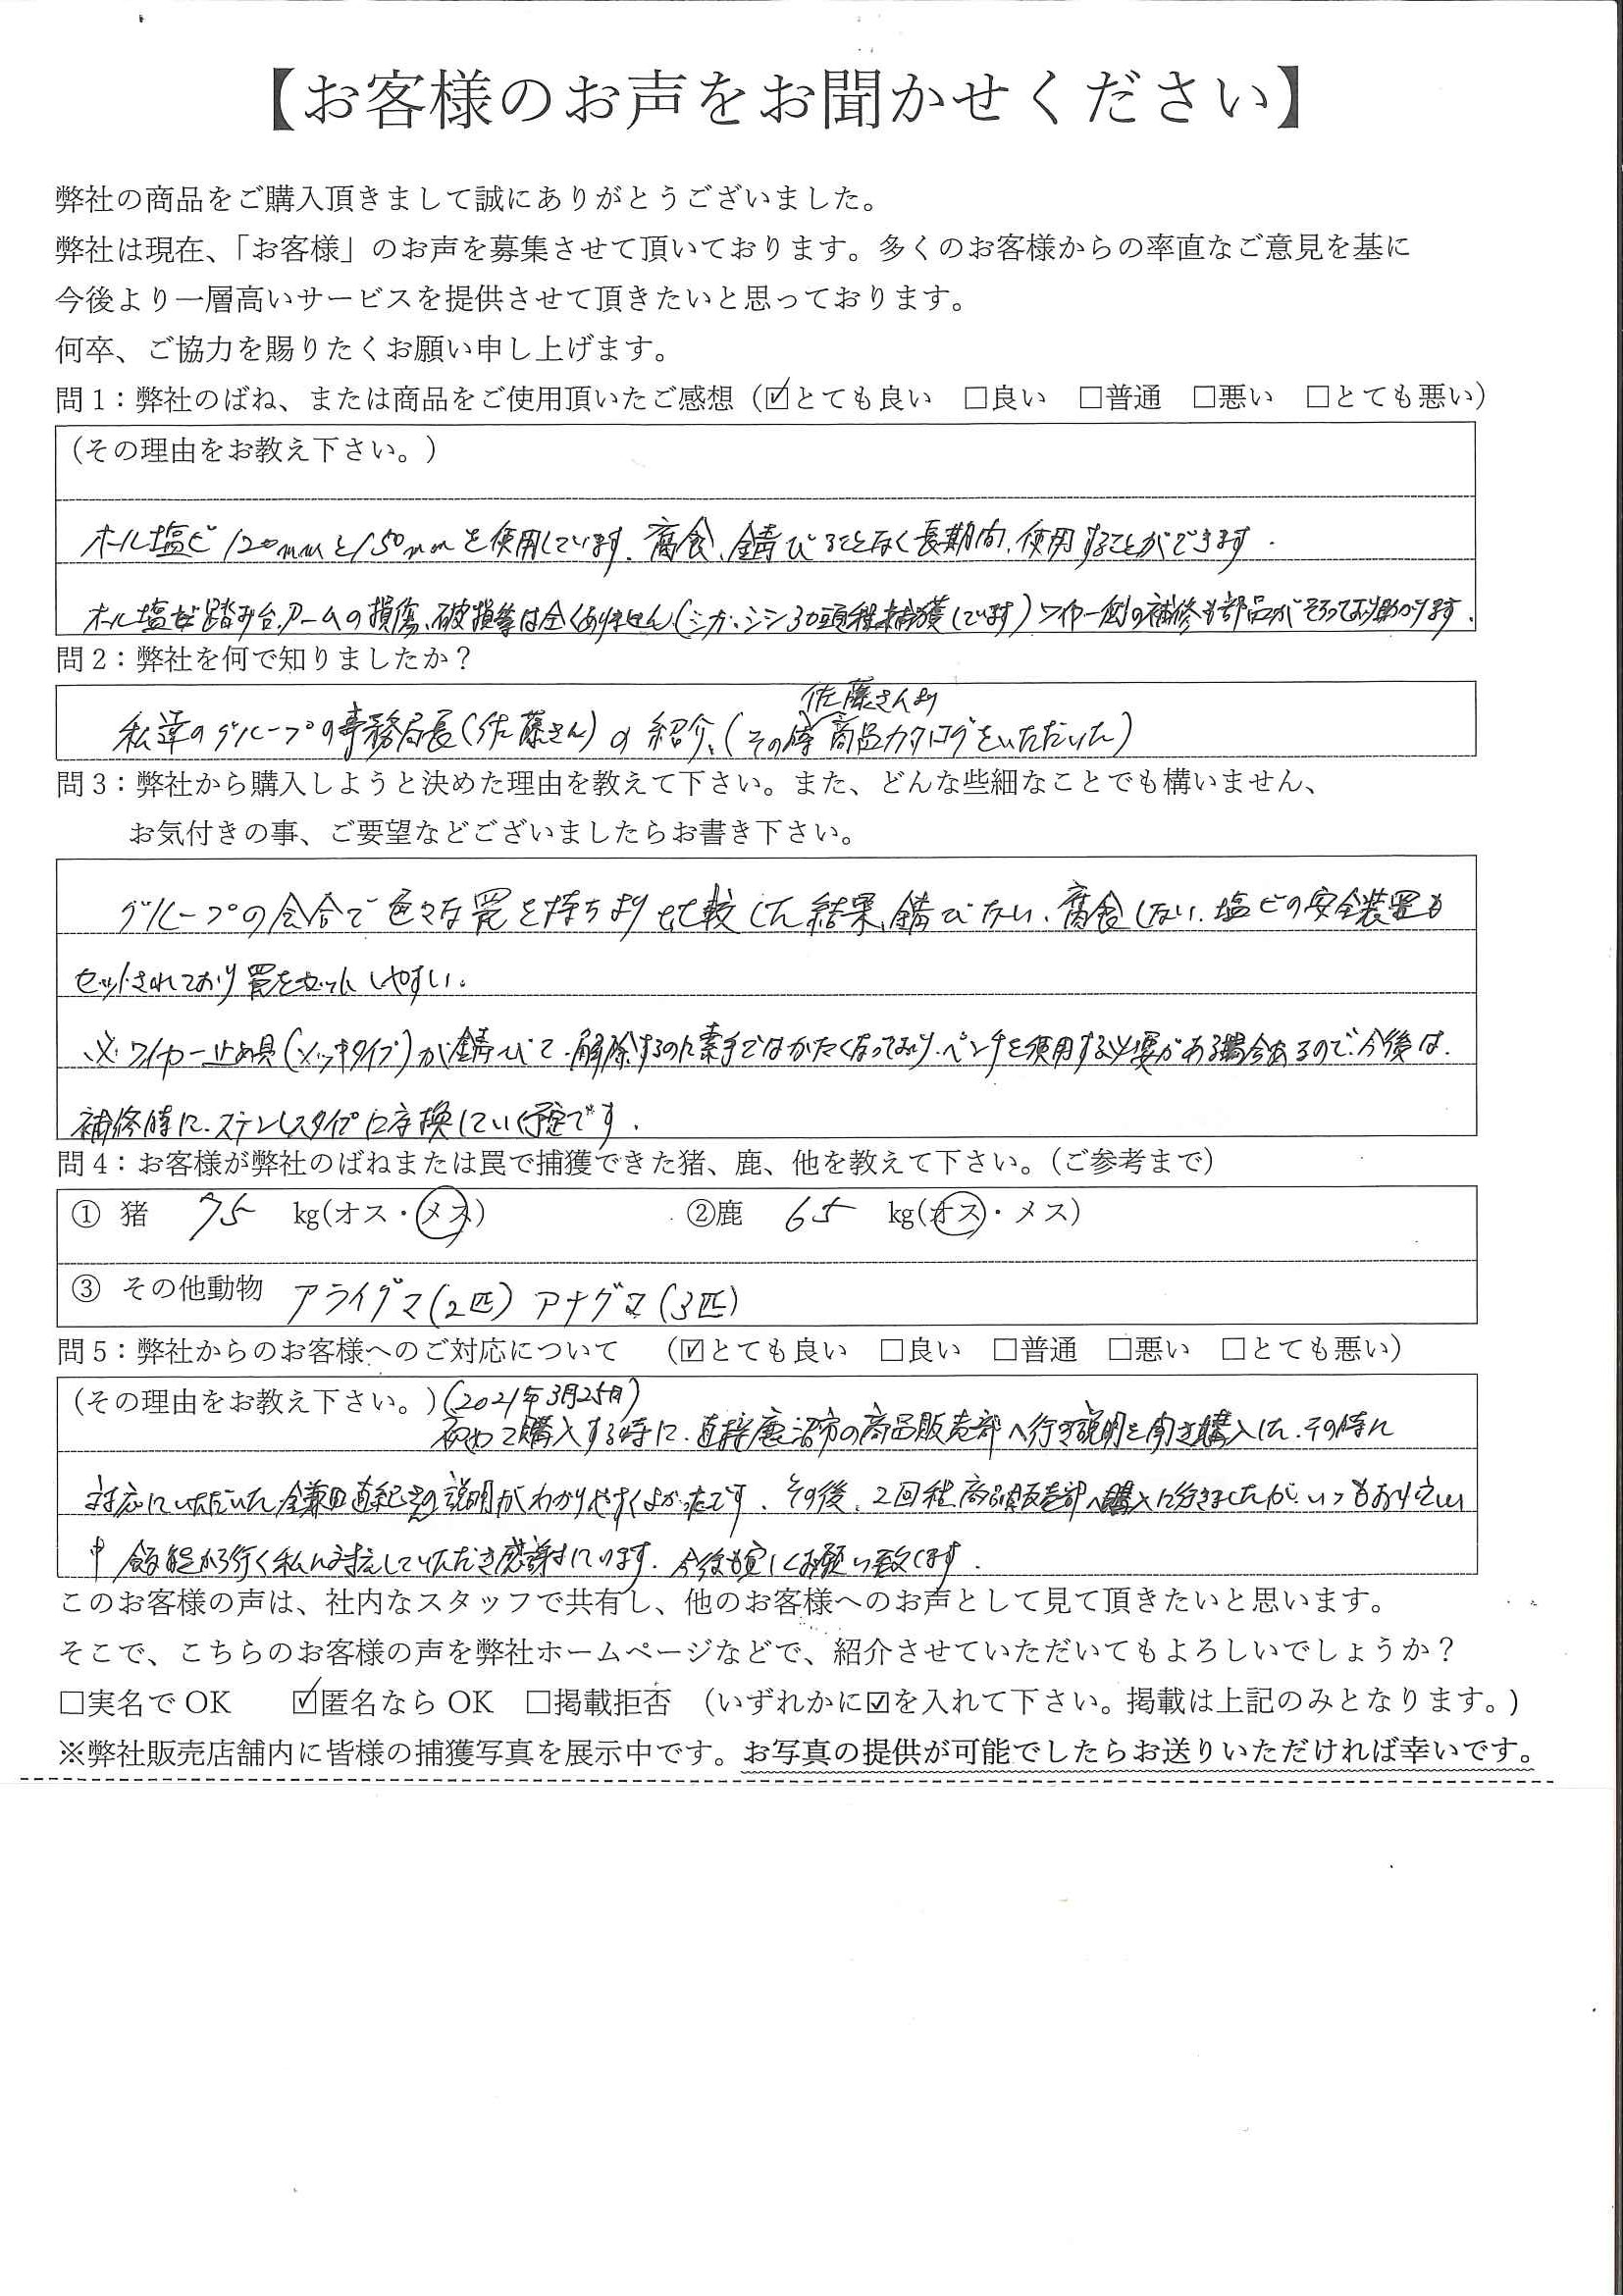 【お客様のお声をお聞かせください】
弊社の商品をご購入頂きまして誠にありがとうございました。
弊社は現在、「お客様」のお声を募集させて頂いております。多くのお客様からの率直なご意見を基に
今後より一層高いサービスを提供させて頂きたいと思っております。
何卒、ご協力を賜りたくお願い申し上げます。
問1：弊社のばね、または商品をご使用頂いたご感想（☑とても良い　□良い　□普通　□悪い　□とても悪い）
（その理由をお教え下さい。）
オール塩ビ120mmと150mmを使用しています。腐食、錆びることなく長期間、使用することができます.
オール塩ビ踏み台、アームの損傷、破損等は全くありません（シカ、シシ30頭程捕獲しています）ワイヤー側の補修も部品がそろっており助かります.
問2：弊社を何で知りましたか？
佐藤さんより
私達のグループの事務局長（佐藤さん）の紹介、（その時商品カタログをいただいた）
問3：弊社から購入しようと決めた理由を教えて下さい。また、どんな些細なことでも構いません、
お気付きの事、ご要望などございましたらお書き下さい。
グループの会合で色々な罠を持ちより比較した結果、錆びない、腐食しない、塩ビの安全装置も
セットされており罠をセットしやすい。
※ワイヤー止め具（メッキタイプ）が錆びて、解除するのに素手ではかたくなっており、ペンチを使用する必要がある場合あるので、今後は、
補修時に、ステンレスタイプに交換していく予定です.
問4：お客様が弊社のばねまたは罠で捕獲できた猪、鹿、他を教えて下さい。（ご参考まで）
① 猪　75　kg(オス・メス)　②鹿　65　kg(オス・メス)
③ その他動物　アライグマ（2匹）アナグマ（3匹）
問5：弊社からのお客様へのご対応について　（☑とても良い　□良い　□普通　□悪い　□とても悪い）
（その理由をお教え下さい。）（2021年3月25日）
初めて購入する時に、直接鹿沼市の商品販売部へ行き説明を聞き購入した、その時に
対応にいただいた鎌田直紀さんの説明がわかりやすくよかったです、その後、2回程、商品販売部へ購入に行きましたが、いつもお忙しい
中　飯能から行く私に対応していただき感謝しています. 今後も宜しくお願い致します.
このお客様の声は、社内なスタッフで共有し、他のお客様へのお声として見て頂きたいと思います。
そこで、こちらのお客様の声を弊社ホームページなどで、紹介させていただいてもよろしいでしょうか？
□実名でOK　☑匿名ならOK　□掲載拒否　（いずれかに☑を入れて下さい。掲載は上記のみとなります。）
※弊社販売店舗内に皆様の捕獲写真を展示中です。お写真の提供が可能でしたらお送りいただければ幸いです。